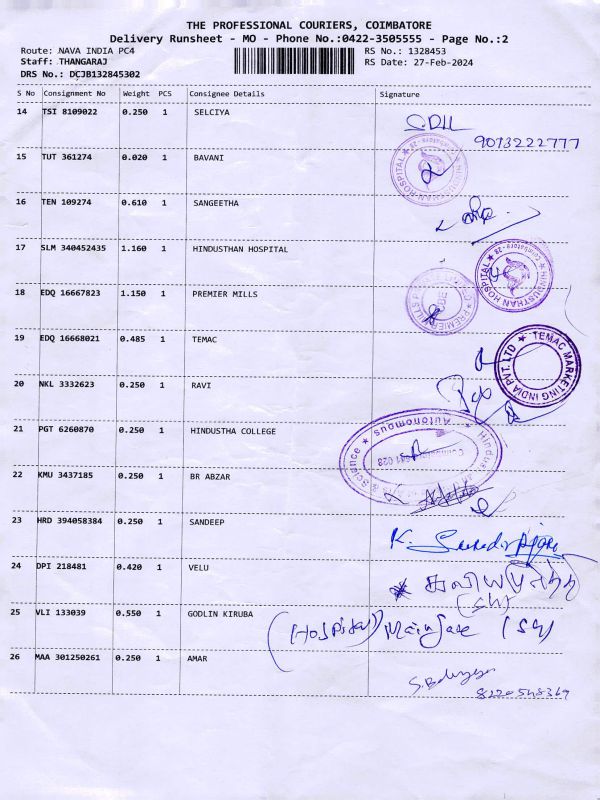 THE PROFESSIONAL COURIERS, COIMBATORE
Delivery Runsheet - MO - Phone No.:0422-3505555 - Page No.:2
Route: NAVA INDIA PC4
RS No.: 1328453
Staff: THANGARAJ
RS Date: 27-Feb-2024
DRS No.: DCJB132845302
S No Consignment No Weight PCS Consignee Details Signature
14 TSI 8109022 0.250 1 SELCIYA
9073222777
15 TUT 361274 0.020 1 BAVANI
HINDUSTHAN HOSPITAL
16 TEN 109274 0.610 1 SANGEETHA
17 SLM 340452435 1.160 1 HINDUSTHAN HOSPITAL
HINDUSTHAN HOSPITAL ★ Coimbatore-28
18 EDQ 16667823 1.150 1 PREMIER MILLS
19 EDQ 16668021 0.485 1 TEMAC
TEMAC MARKETING INDIA PVT. LTD ★
20 NKL 3332623 0.250 1 RAVI
21 PGT 6260870 0.250 1 HINDUSTHA COLLEGE
Autonomous
22 KMU 3437185 0.250 1 BR ABZAR
23 HRD 394058384 0.250 1 SANDEEP
24 DPI 218481 0.420 1 VELU
25 VLI 133039 0.550 1 GODLIN KIRUBA
(Hospital)
26 MAA 301250261 0.250 1 AMAR
8220548369